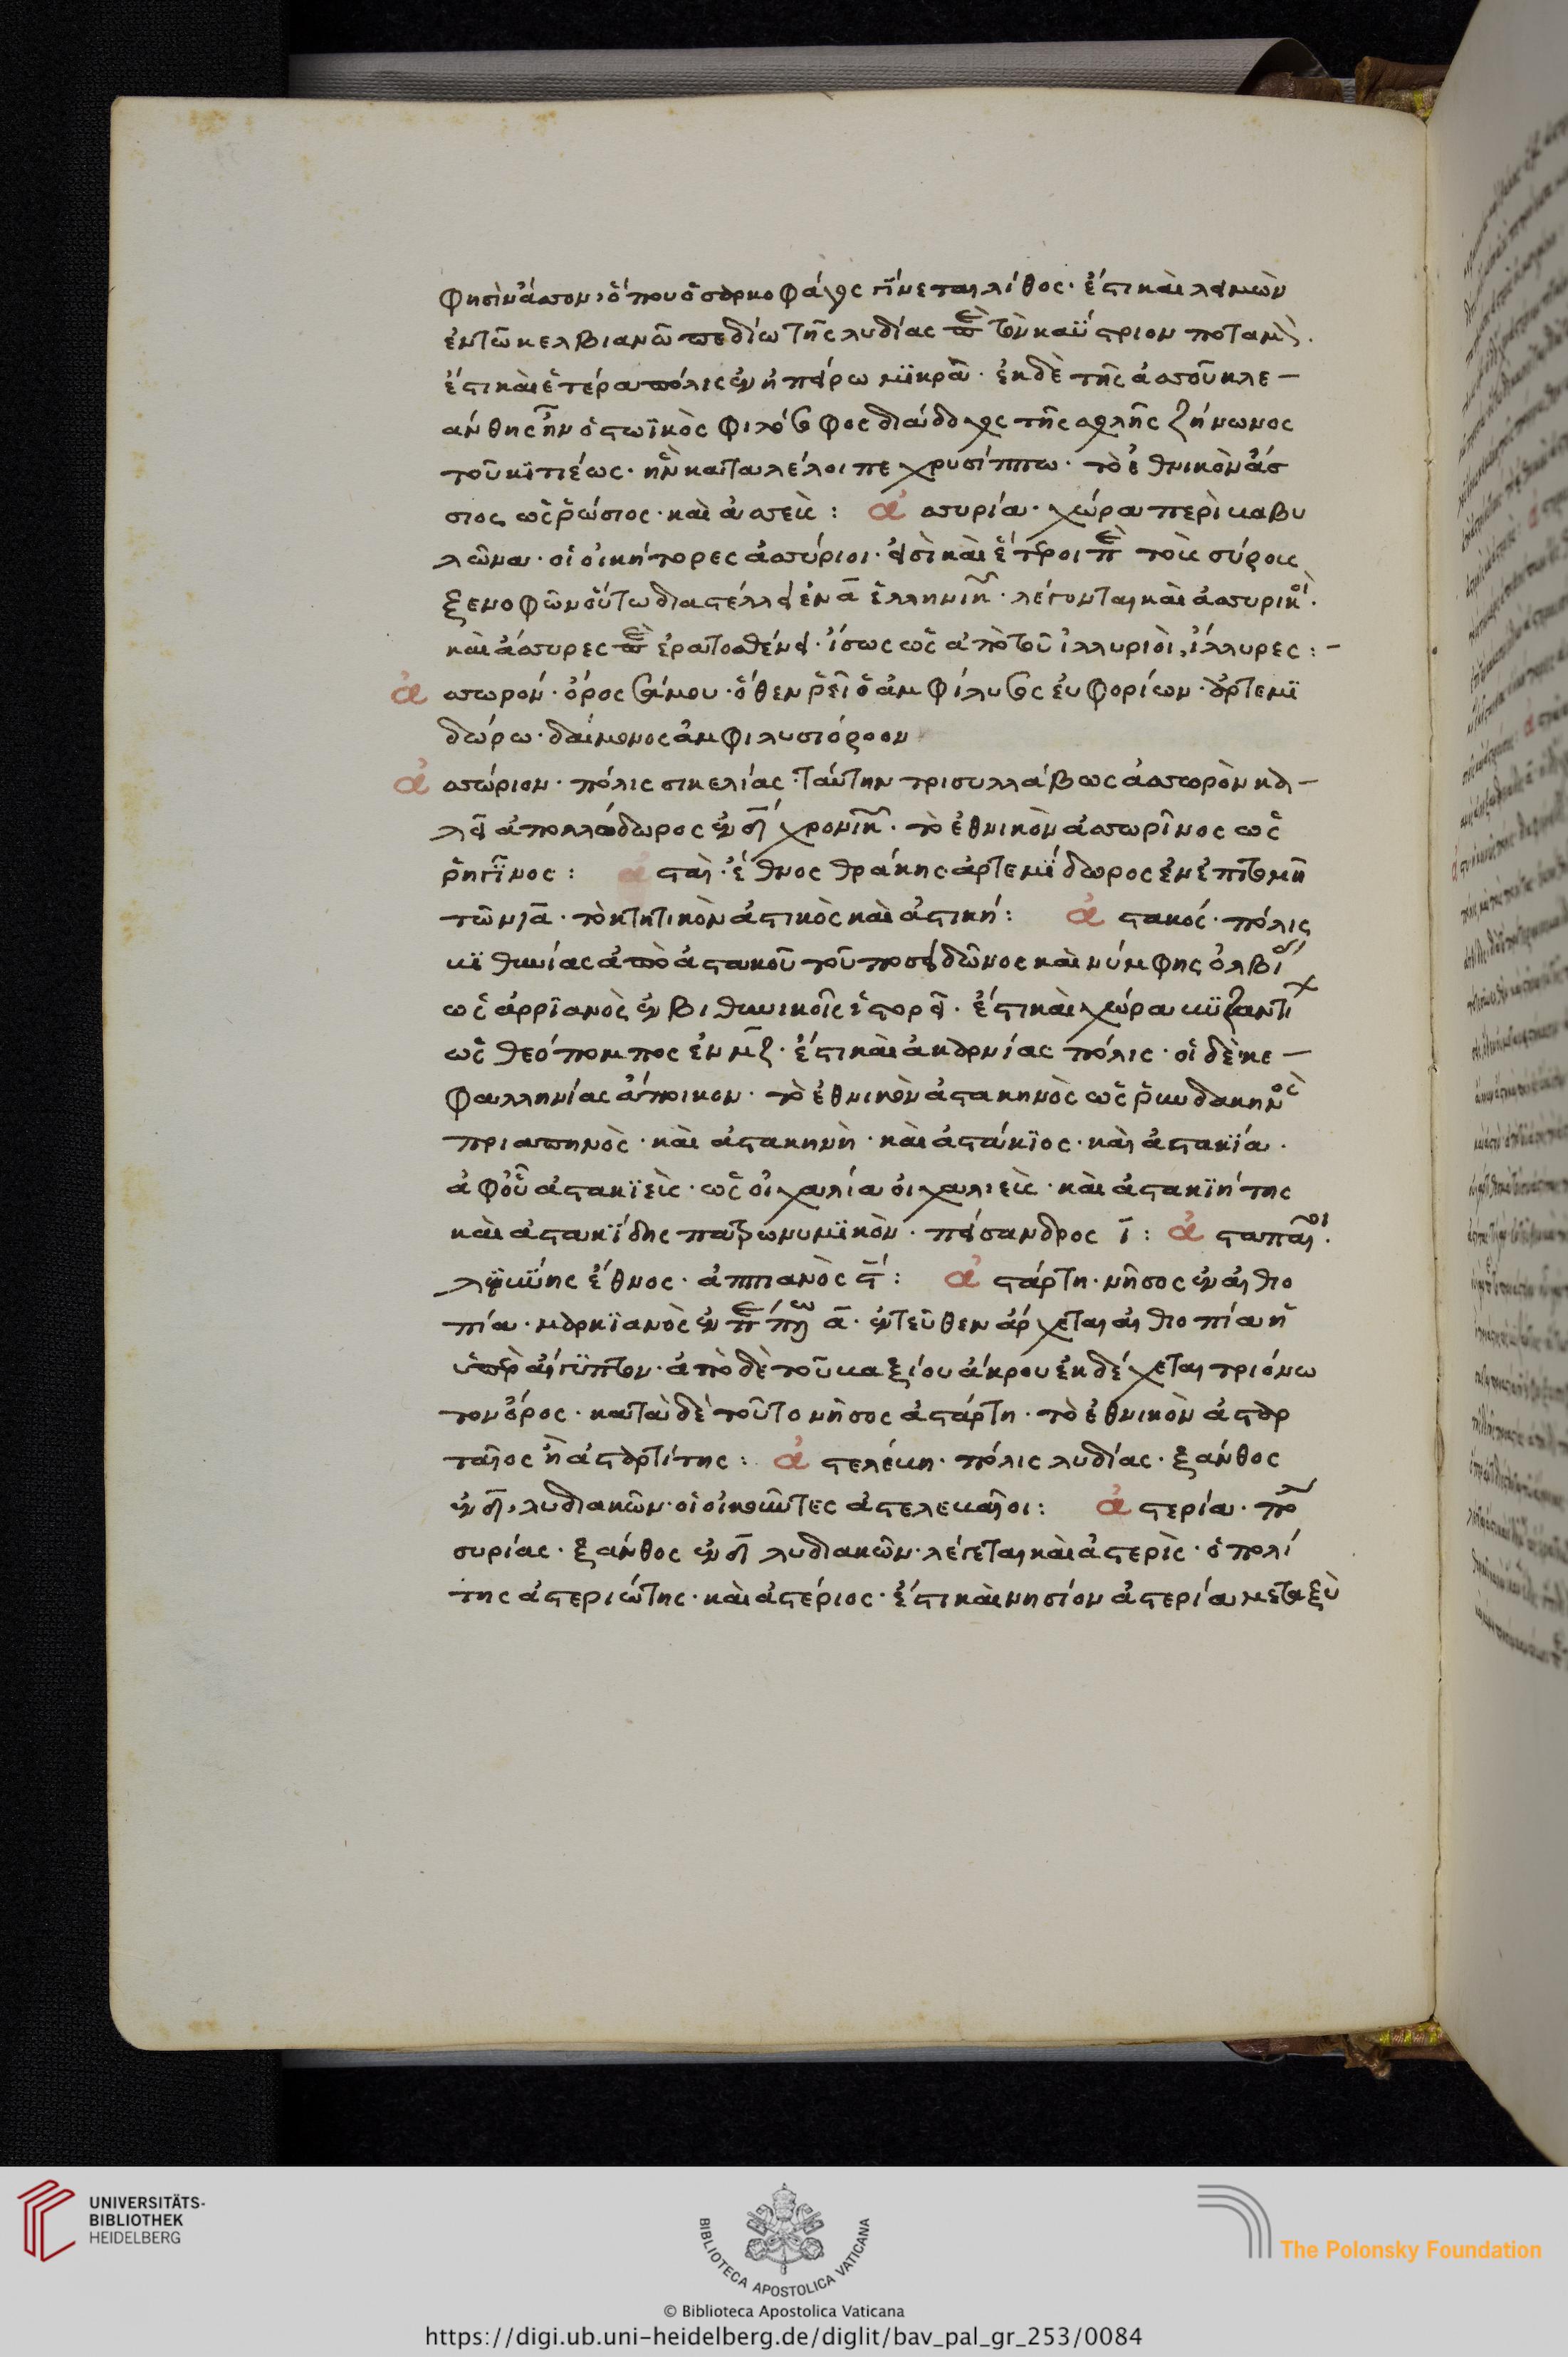 φησὶν ἄσσον, ὅπου ὁ σαρκοφάγος γίνεται λίθος· ἔστι καὶ λειμὼν
ἐν τῶ κελβιανῶ πεδίω τῆς λυδίας παρὰ τὸν καΰστριον ποταμὸν.
ἔστι καὶ ἑτέρα πόλις ἐν ἠπείρω μϊκρᾶ· ἐκ δὲ τῆς ἀσσοῦ κλε –
άνθης ἦν ὁ στωϊκὸς φιλόσοφος διάδοχος τῆς σχολῆς ζήνωνος
τοῦ κιτιέως· ἣν καταλέλοιπε χρυσίππω· τὸ ἐθνικὸν ἄσ
σιος ὡς ῥώσιος· καὶ ἀσσεὺς : ἀσσυρία· χώρα περὶ βαβυ
λῶνα· οἱ οἰκήτορες ἀσσύριοι· εἰσὶ καὶ ἕτεροι παρὰ τοὺς σύρους
ξενοφῶν οὕτω διαστέλλει ἐν α ἑλληνικῆ· λέγονται καὶ ἀσσυρικοὶ.
καὶ ἄσσυρες παρὰ ἐρατοσθένει· ἴσως ὡς ἀπὸ τοῦ ἰλλυριοὶ, ἴλλυρες : –
ἀσσωρόν· ὄρος σάμου· ὅθεν ῥεῖ ὁ ἀμφίλυσος εὐφορίων· ἀρτεμϊ
δώρω· δαίμονος ἀμφιλυσιόροον
ἀσσώριον· πόλις σικελίας· ταύτην τρισυλλάβως ἀσσωρὸν κα –
λεῖ ἀπολλόδωρος ἐν δ χρονικῆ· τὸ ἐθνικὸν ἀσσωρῖνος ὡς
ῥηγῖνος : ἀσταὶ· ἔθνος θράκης· ἀρτεμΐδωρος ἐν ἐπιτομῆ
τῶν ια· τὸ κτητικὸν ἀστικὸς καὶ ἀστική : ἀστακός· πόλις
βϊθυνίας ἀπὸ ἀστακοῦ τοῦ ποσειδῶνος καὶ νύμφης ὀλβί
ὡς ἀρρϊανὸς ἐν βιθυνικοῖς ἱστορεῖ· ἔστι καὶ χώρα βϋζαντι
ὡς θεόπομπος ἐν μζ· ἔστι καὶ ἀκαρνίας πόλις· οἱ δὲ κε –
φαλληνίας ἄποικον· τὸ ἐθνικὸν ἀστακηνὸς ὡς ῥυνδακηνὸς
πριαπηνὸς· καὶ ἀστακηνὴ· καὶ ἀστάκϊος· καὶ ἀστακϊα·
ἀφ' οὗ ἀστακϊεὺς· ὡς οἰχαλία οἰχαλιεὺς· καὶ ἀστακϊήτης
καὶ ἀστακΐδης πατρωνυμϊκὸν· πείσανδρος ι : ἀσταπαῖοι·
λϊβύης ἔθνος· ἀππιανὸς ς : ἀστάρτη· νῆσος ἐν αἰθιο
πία· μαρκϊανὸς ἐν α· ἐντεῦθεν ἄρχεται αἰθιοπία ἡ
ὑπὲρ αἴγϋπτον· ἀπὸ δὲ τοῦ βαξίου ἄκρου ἐκδέχεται τριόνω
τον ὄρος· κατὰ δὲ τοῦτο νῆσος ἀστάρτη· τὸ ἐθνικὸν ἀσταρ
ταῖος ἢ ἀσταρτίτης : ἀστελέβη· πόλις λυδίας· ξάνθος
ἐν δ, λυδιακῶν· οἱ οἰκοῦντες ἀστελεβαῖοι : ἀστερία· πό
συρίας· ξάνθος ἐν δ λυδιακῶν· λέγεται καὶ ἀστερὶς· ὁ πολί
της ἀστεριώτης· καὶ ἀστέριος· ἔστι καὶ νησίον ἀστερία μεταξὺ
UNIVERSITÄTS-
BIBLIOTHEK
HEIDELBERG
BIBLIOTECA APOSTOLICA VATICANA
The Polonsky Foundation
© Biblioteca Apostolica Vaticana
https://digi.ub.uni-heidelberg.de/diglit/bav_pal_gr_253/0084